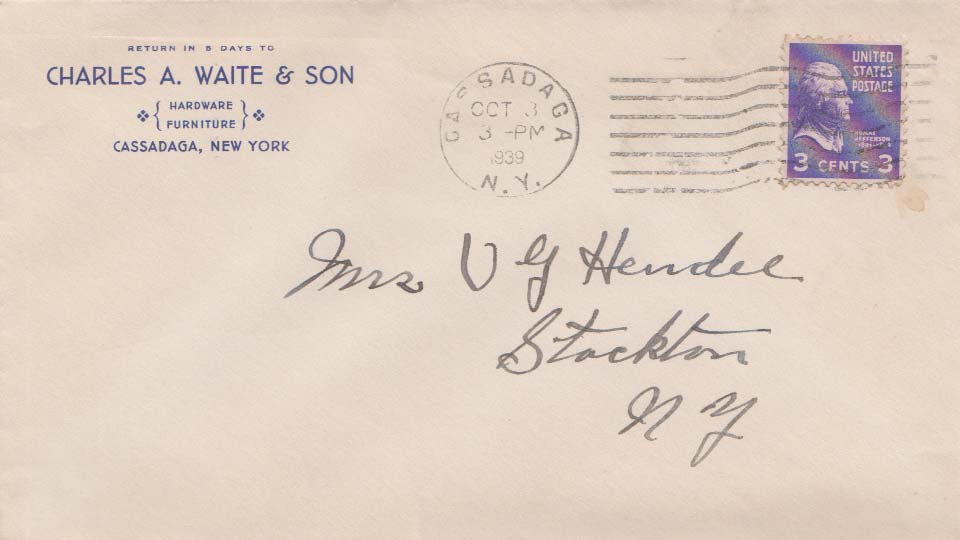 RETURN IN 5 DAYS TO
CHARLES A. WAITE & SON
HARDWARE
FURNITURE
CASSADAGA, NEW YORK
CASSADAGA
OCT 3
3 -PM
1939
N.Y.
UNITED
STATES
POSTAGE
THOMAS
JEFFERSON
3 CENTS 3
Mrs V G Hendee
Stockton
N Y